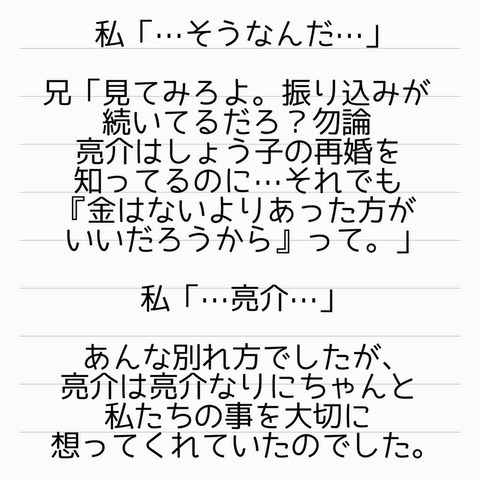 私「…そうなんだ…」
兄「見てみろよ。振り込みが
続いてるだろ？勿論
亮介はしょう子の再婚を
知ってるのに…それでも
『金はないよりあった方が
いいだろうから』って。」
私「…亮介…」
あんな別れ方でしたが、
亮介は亮介なりにちゃんと
私たちの事を大切に
想ってくれていたのでした。